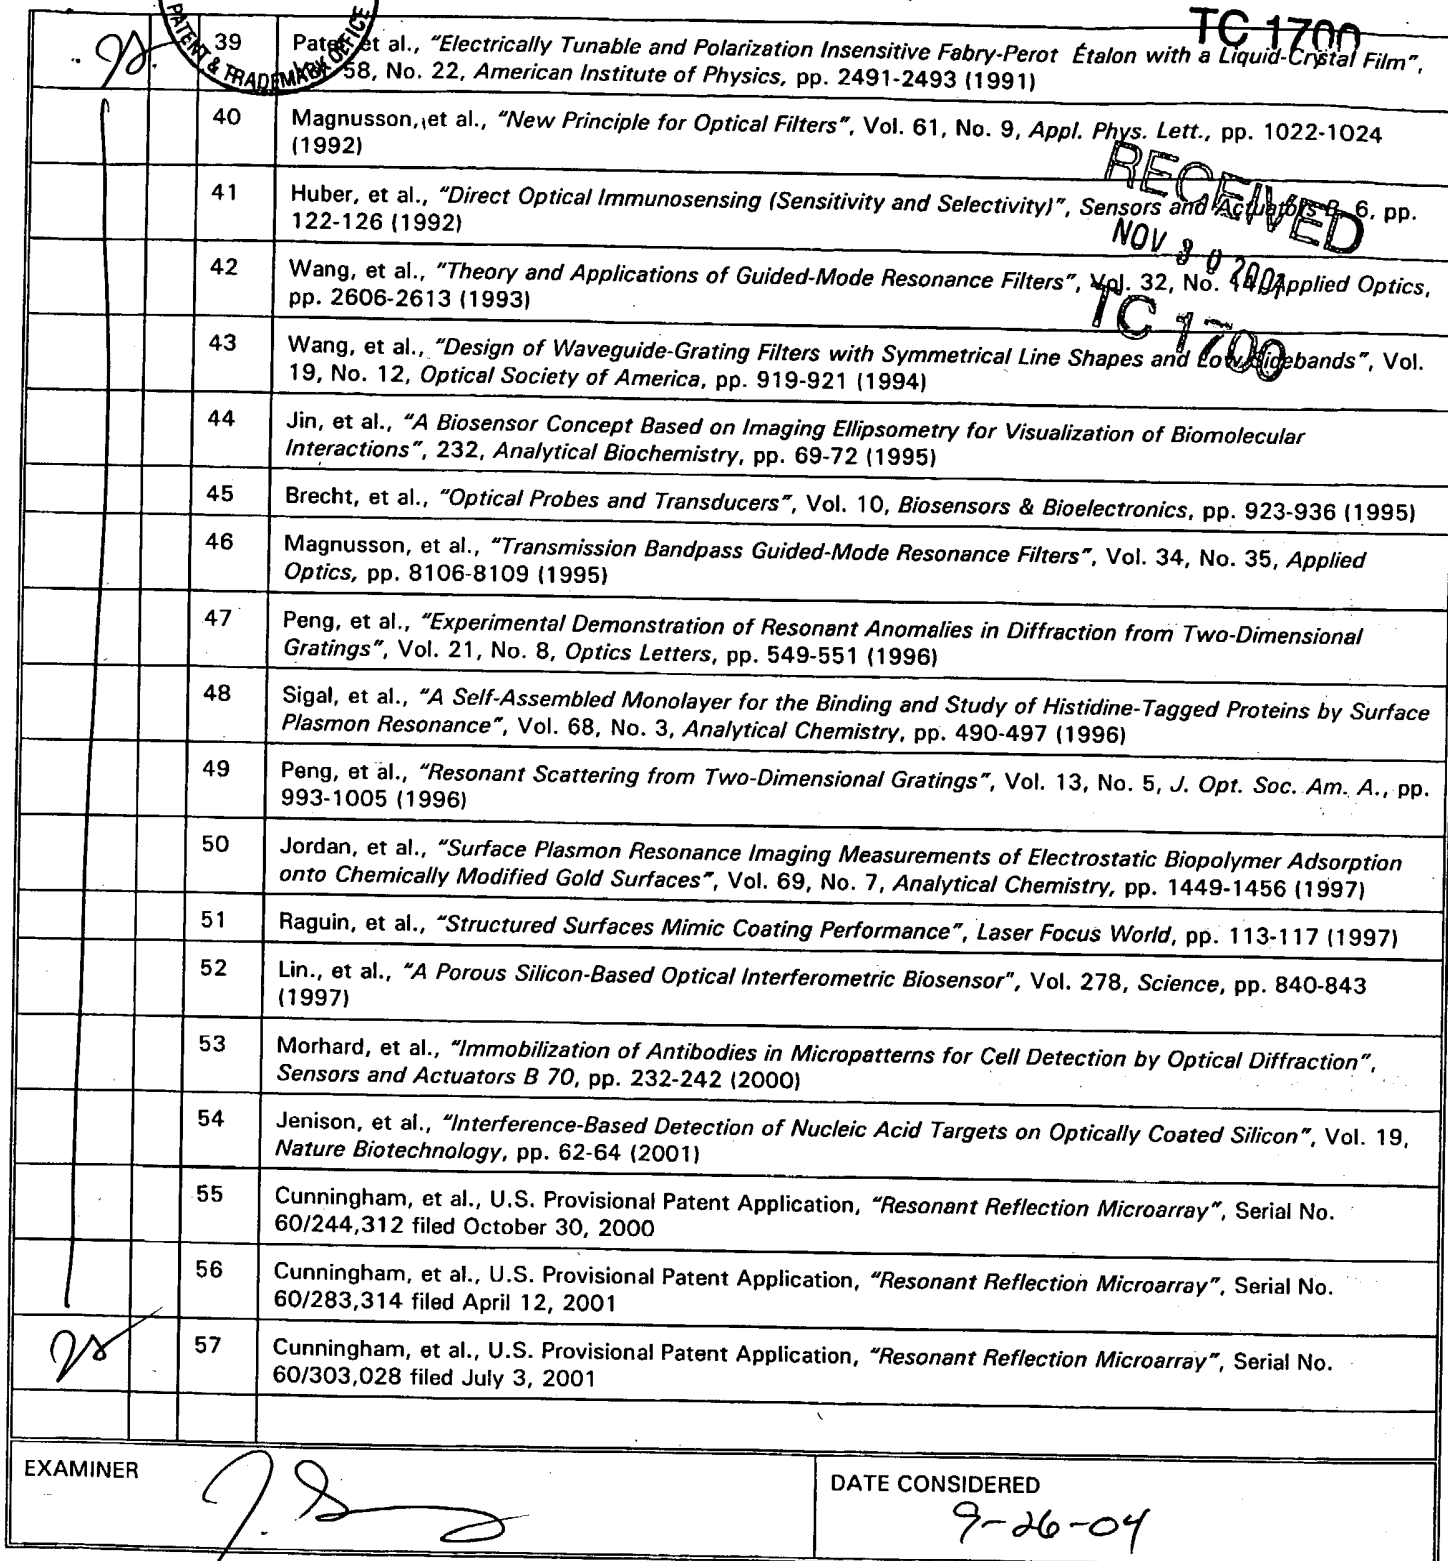 PATENT & TRADEMARK OFFICE
TC 1700
39 et al., "Electrically Tunable and Polarization Insensitive Fabry-Perot Étalon with a Liquid-Crystal Film",
58, No. 22, American Institute of Physics, pp. 2491-2493 (1991)
40 Magnusson, et al., "New Principle for Optical Filters", Vol. 61, No. 9, Appl. Phys. Lett., pp. 1022-1024
(1992)
RECEIVED
41 Huber, et al., "Direct Optical Immunosensing (Sensitivity and Selectivity)", Sensors and Actuators B, 6, pp.
122-126 (1992)
NOV 30 2001
42 Wang, et al., "Theory and Applications of Guided-Mode Resonance Filters", Vol. 32, No. Applied Optics,
pp. 2606-2613 (1993)
TC 1700
43 Wang, et al., "Design of Waveguide-Grating Filters with Symmetrical Line Shapes and Low Sidebands", Vol.
19, No. 12, Optical Society of America, pp. 919-921 (1994)
44 Jin, et al., "A Biosensor Concept Based on Imaging Ellipsometry for Visualization of Biomolecular
Interactions", 232, Analytical Biochemistry, pp. 69-72 (1995)
45 Brecht, et al., "Optical Probes and Transducers", Vol. 10, Biosensors & Bioelectronics, pp. 923-936 (1995)
46 Magnusson, et al., "Transmission Bandpass Guided-Mode Resonance Filters", Vol. 34, No. 35, Applied
Optics, pp. 8106-8109 (1995)
47 Peng, et al., "Experimental Demonstration of Resonant Anomalies in Diffraction from Two-Dimensional
Gratings", Vol. 21, No. 8, Optics Letters, pp. 549-551 (1996)
48 Sigal, et al., "A Self-Assembled Monolayer for the Binding and Study of Histidine-Tagged Proteins by Surface
Plasmon Resonance", Vol. 68, No. 3, Analytical Chemistry, pp. 490-497 (1996)
49 Peng, et al., "Resonant Scattering from Two-Dimensional Gratings", Vol. 13, No. 5, J. Opt. Soc. Am. A., pp.
993-1005 (1996)
50 Jordan, et al., "Surface Plasmon Resonance Imaging Measurements of Electrostatic Biopolymer Adsorption
onto Chemically Modified Gold Surfaces", Vol. 69, No. 7, Analytical Chemistry, pp. 1449-1456 (1997)
51 Raguin, et al., "Structured Surfaces Mimic Coating Performance", Laser Focus World, pp. 113-117 (1997)
52 Lin., et al., "A Porous Silicon-Based Optical Interferometric Biosensor", Vol. 278, Science, pp. 840-843
(1997)
53 Morhard, et al., "Immobilization of Antibodies in Micropatterns for Cell Detection by Optical Diffraction",
Sensors and Actuators B 70, pp. 232-242 (2000)
54 Jenison, et al., "Interference-Based Detection of Nucleic Acid Targets on Optically Coated Silicon", Vol. 19,
Nature Biotechnology, pp. 62-64 (2001)
55 Cunningham, et al., U.S. Provisional Patent Application, "Resonant Reflection Microarray", Serial No.
60/244,312 filed October 30, 2000
56 Cunningham, et al., U.S. Provisional Patent Application, "Resonant Reflection Microarray", Serial No.
60/283,314 filed April 12, 2001
57 Cunningham, et al., U.S. Provisional Patent Application, "Resonant Reflection Microarray", Serial No.
60/303,028 filed July 3, 2001
EXAMINER
DATE CONSIDERED
9-26-04